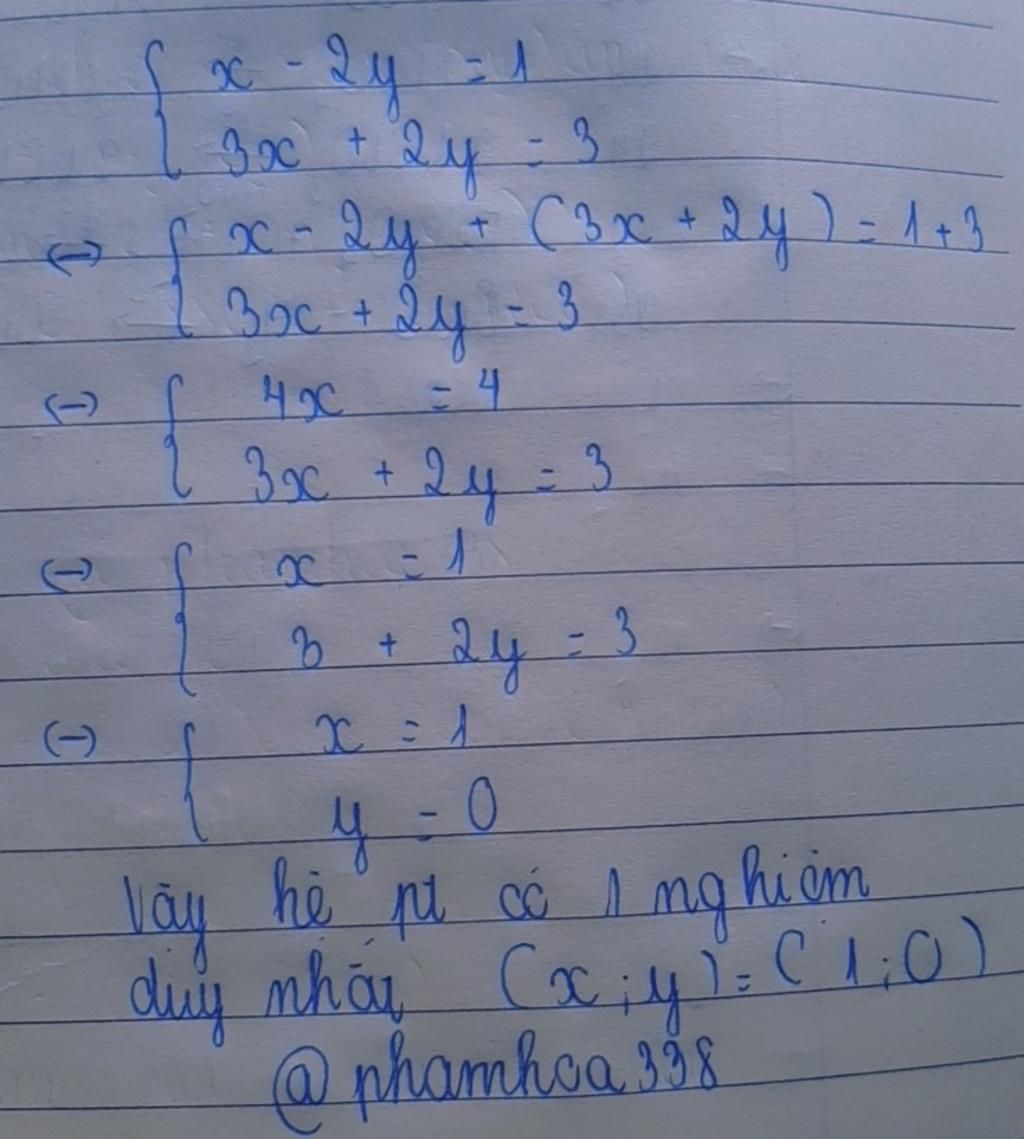 { x - 2y = 1
3x + 2y = 3
<-> { x - 2y + (3x + 2y) = 1 + 3
3x + 2y = 3
<-> { 4x = 4
3x + 2y = 3
<-> { x = 1
3 + 2y = 3
<-> { x = 1
y = 0
Vậy hệ pt có 1 nghiệm
duy nhất (x ; y) = ( 1 ; 0 )
@phamhoa338